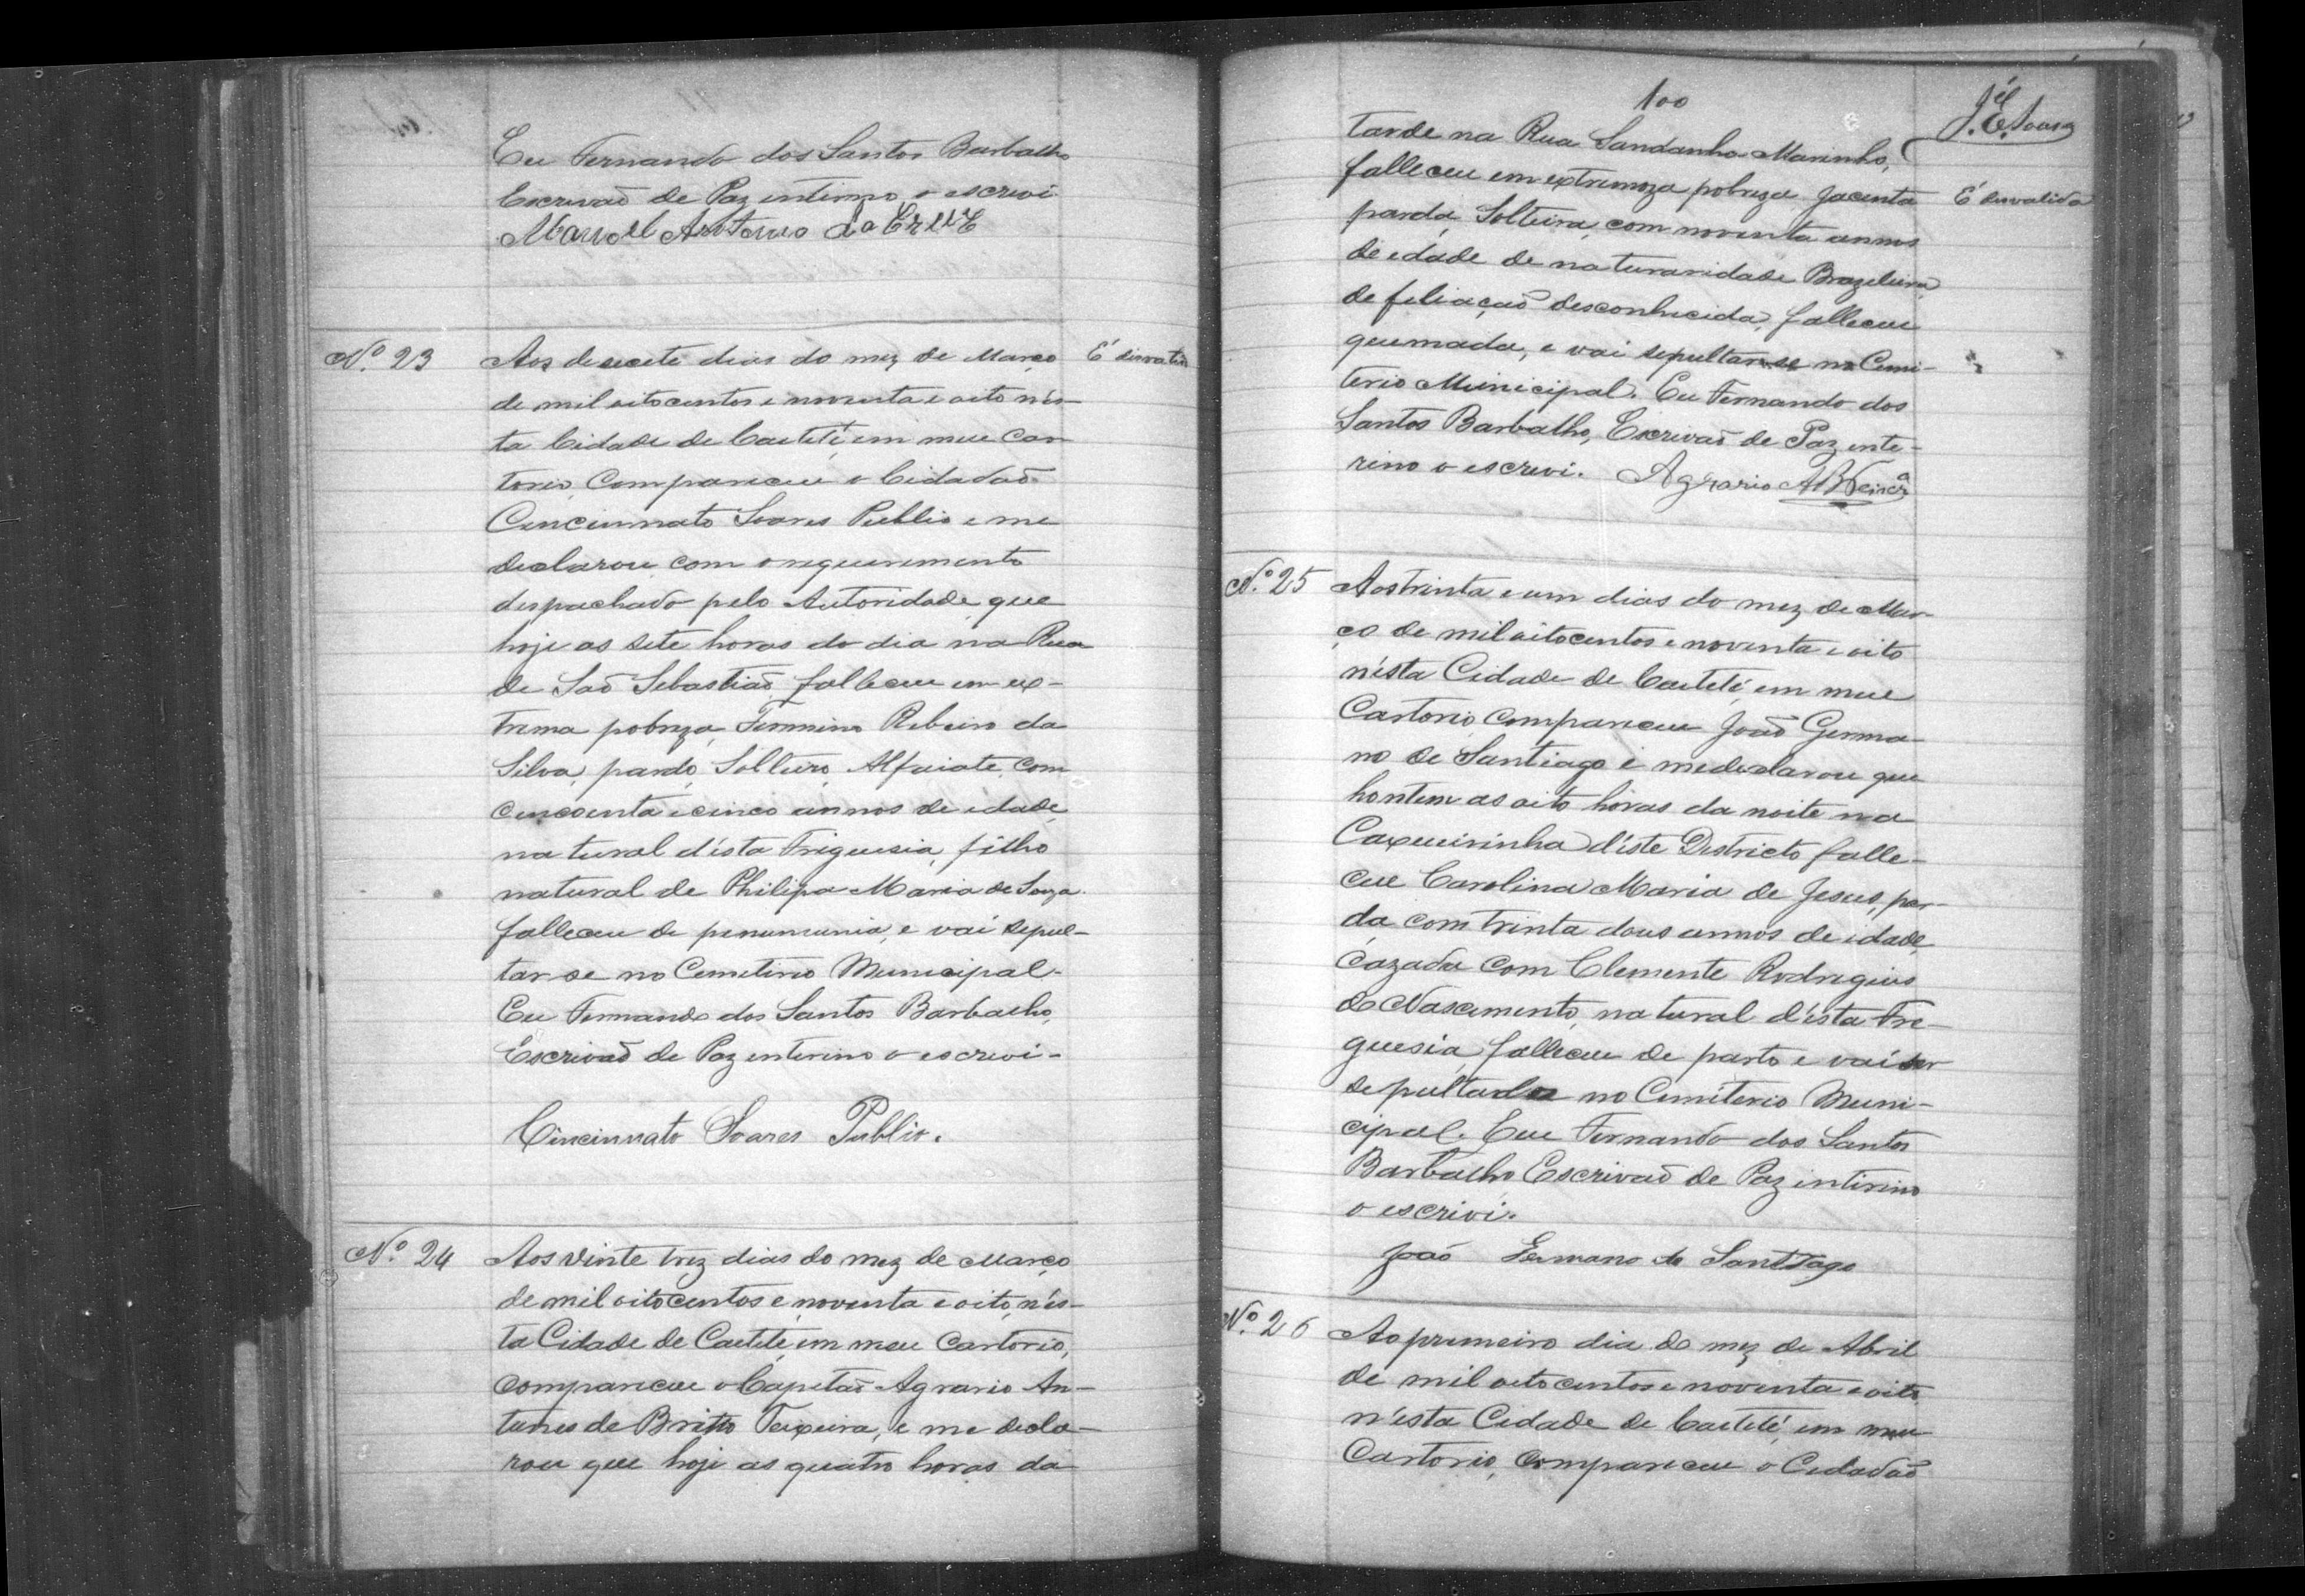 Eu Fernando dos Santos Barbalho
Escrivaõ de Paz interino o escrevi
Manoel Antonio da Cruz
Nº. 23
É desvalido
Aos desecete dias do mez de Março
de mil oitocentos e noventa e oito nés-
ta Cidade de Caeteté, em meu Car
torio, Compareceu o Cidadaõ
Cincinnato Soares Publio e me
declarou com o requerimento
despachado pelo Autoridade que
hoje as sete horas do dia na Rua
de Saõ Sebastiaõ, falleceu em ex-
trema pobreza, Firmino Ribeiro da
Silva, pardo, Solteiro, Alfaiate, com
cincoenta e cinco annos de edade,
natural d'ésta Freguesia, filho
natural de Philipa Maria de Souza.
falleceu de penumunia, e vai sepul-
tar-se no Cemeterio Municipal-
Eu Fernando dos Santos Barbalho,
Escrivaõ de Paz enterino o escrevi-
Cincinnato Soares Publio.
Nº. 24
Aos vinte trez dias do mez de Março
de mil oitocentos e noventa e oito, nés-
ta Cidade de Caeteté, em meu Cartorio,
compareceu o Capitaõ Agrario An-
tunes de Britto Teixeira, e me decla-
rou que hoje as quatro horas da
100
J. E. Sousa
tarde na Rua Sandanha Marinho,
falleceu em extremoza pobreza Jacinta
É desvalida
parda, Solteira, com noventa annos
de edade de naturaridade Brazileira,
de filiaçaõ desconhecida, falleceu
queimada, e vai sepultar-se no Cemi-
terio Municipal. Eu Fernando dos
Santos Barbalho, Escrivaõ de Paz ente-
rino o escrevi. Agrario
Nº. 25
Aos trinta e um dias do mez de Mar-
ço de mil oitocentos e noventa e oito
n'ésta Cidade de Caeteté, em meu
Cartorio, Compareceu Joaõ Germa
no de Santiago e me declarou que
hontem as oito horas da noite na
Caxueirinha d'éste Destricto falle-
ceu Carolina Maria de Jesus, par-
da, com trinta dous annos de idade,
cazada com Clemente Rodrigues
do Nascimento, natural d'ésta Fre-
guesia, falleceu de parto e vai ser
sepultada no Cemiterio Muni-
cipal. Eu Fernando dos Santos
Barbalho Escrivaõ de Paz intirino
o escrivi.
Joaõ Germano de Santtago
Nº. 26
Ao primeiro dia do mez de Abril
de mil oito centos e noventa e oito
n'ésta Cidade de Caeteté, em meu
Cartorio, Compareceu o Cidadaõ